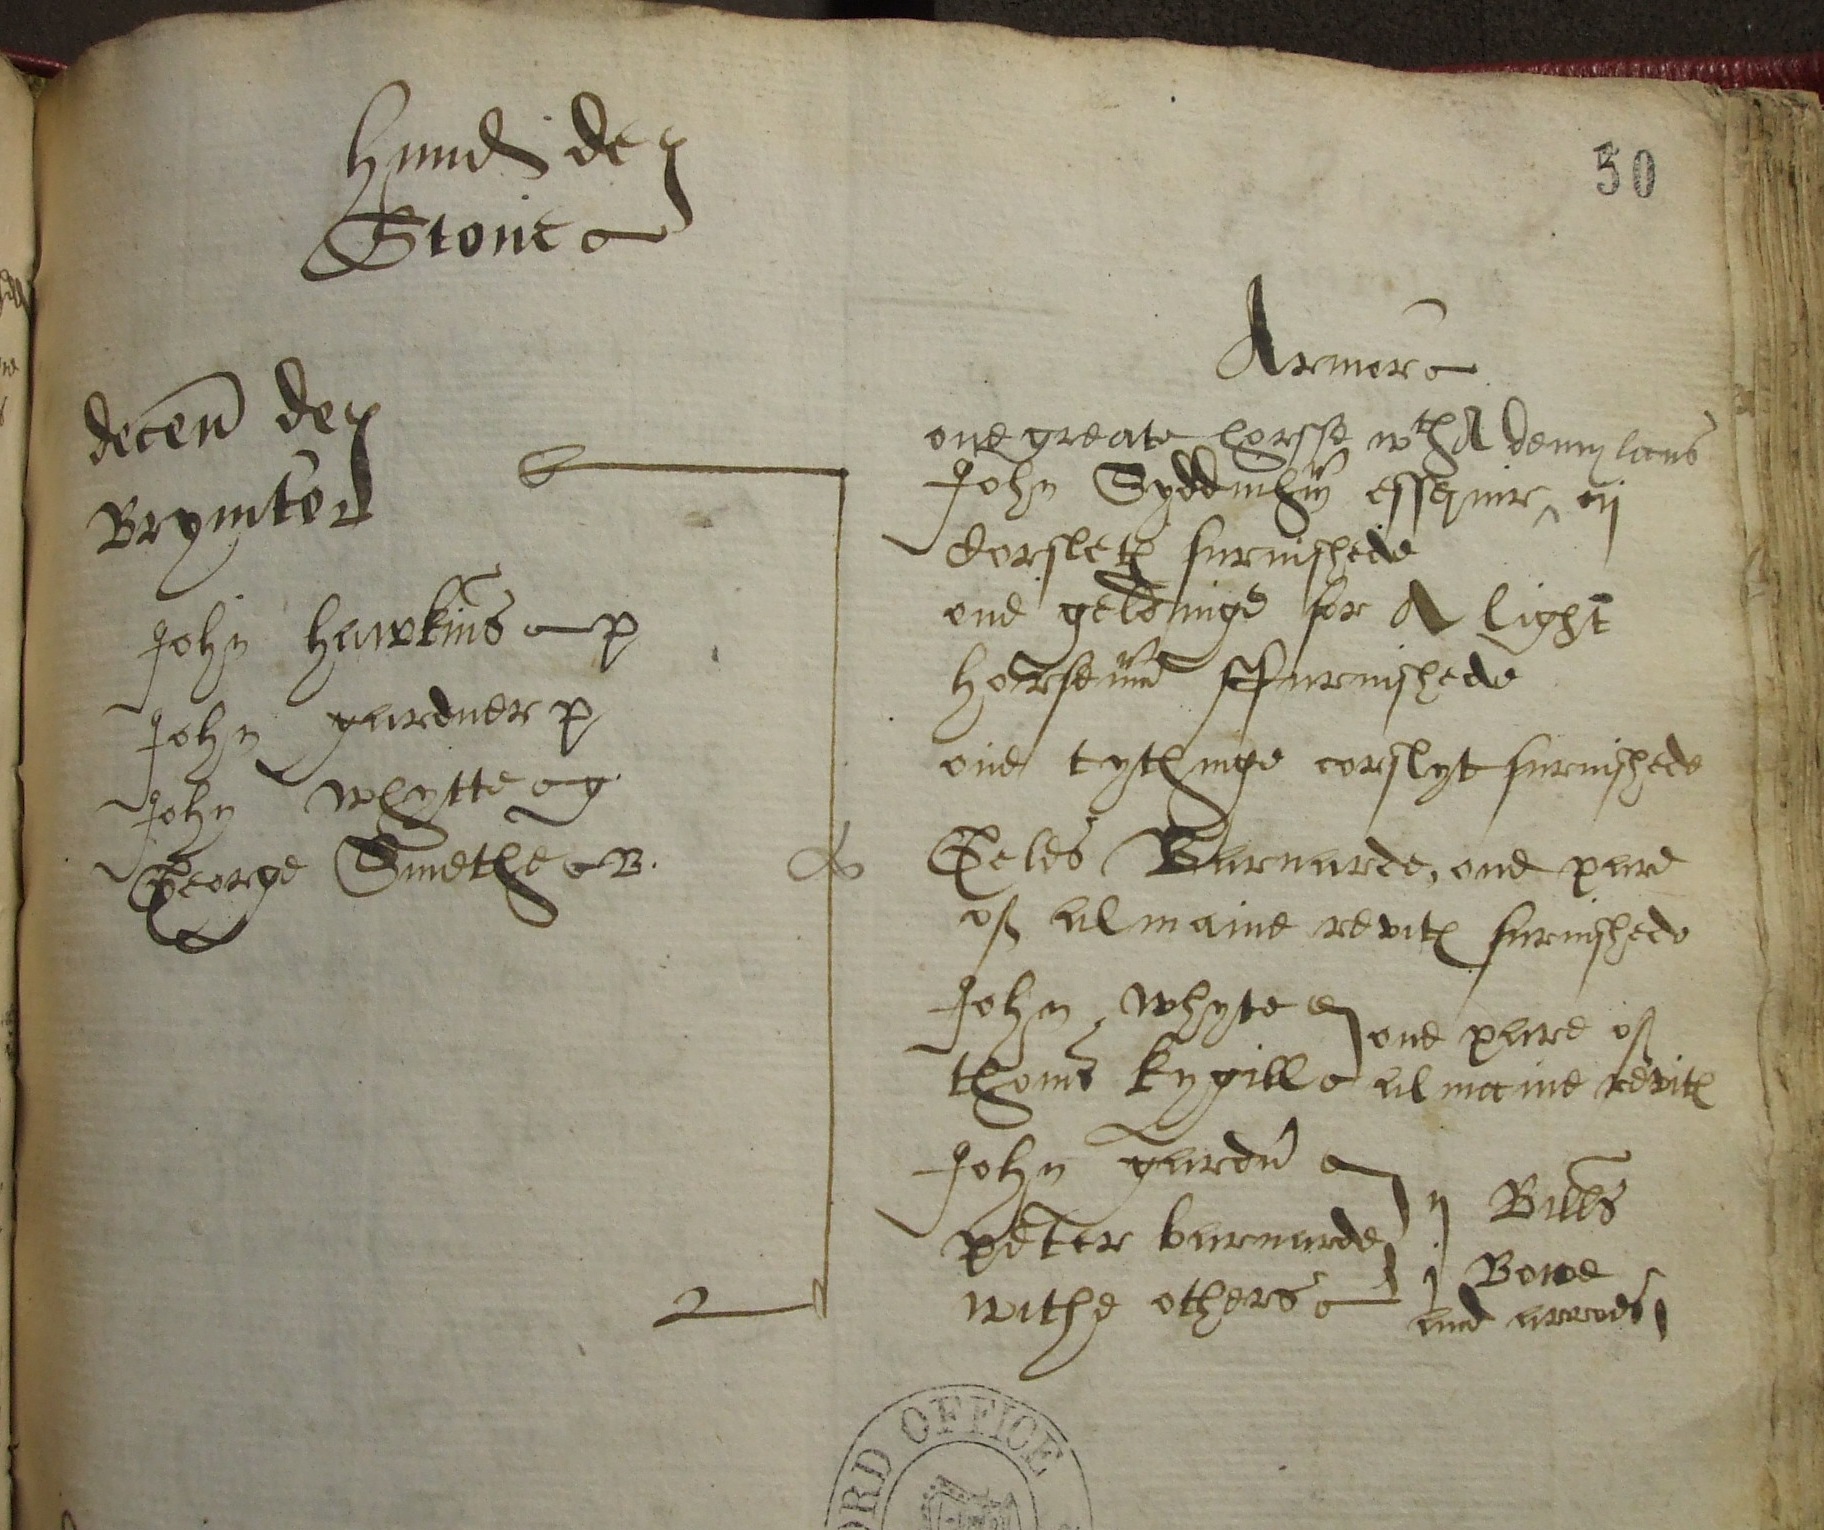 Hund de
Stone
50
decen de
Brymton
John Hawkins p
John gardner p
John Whytte g
George Smethe B.
Armor
one greate horsse wth A demy lans
John Syddnhm essquire ^ iij
Corslet furnishede
one geldinge for A light
horseman ffurnishede
one tythinge corslyt furnishede
Geles Barnarde, one pare
of almaine revit furnishede
John Whyte
thoms Kygill
one pare of
almaine revit
John gardn
peter barnarde
withe others
ij Bills
j Bowe
and arrows
RD OFFICE